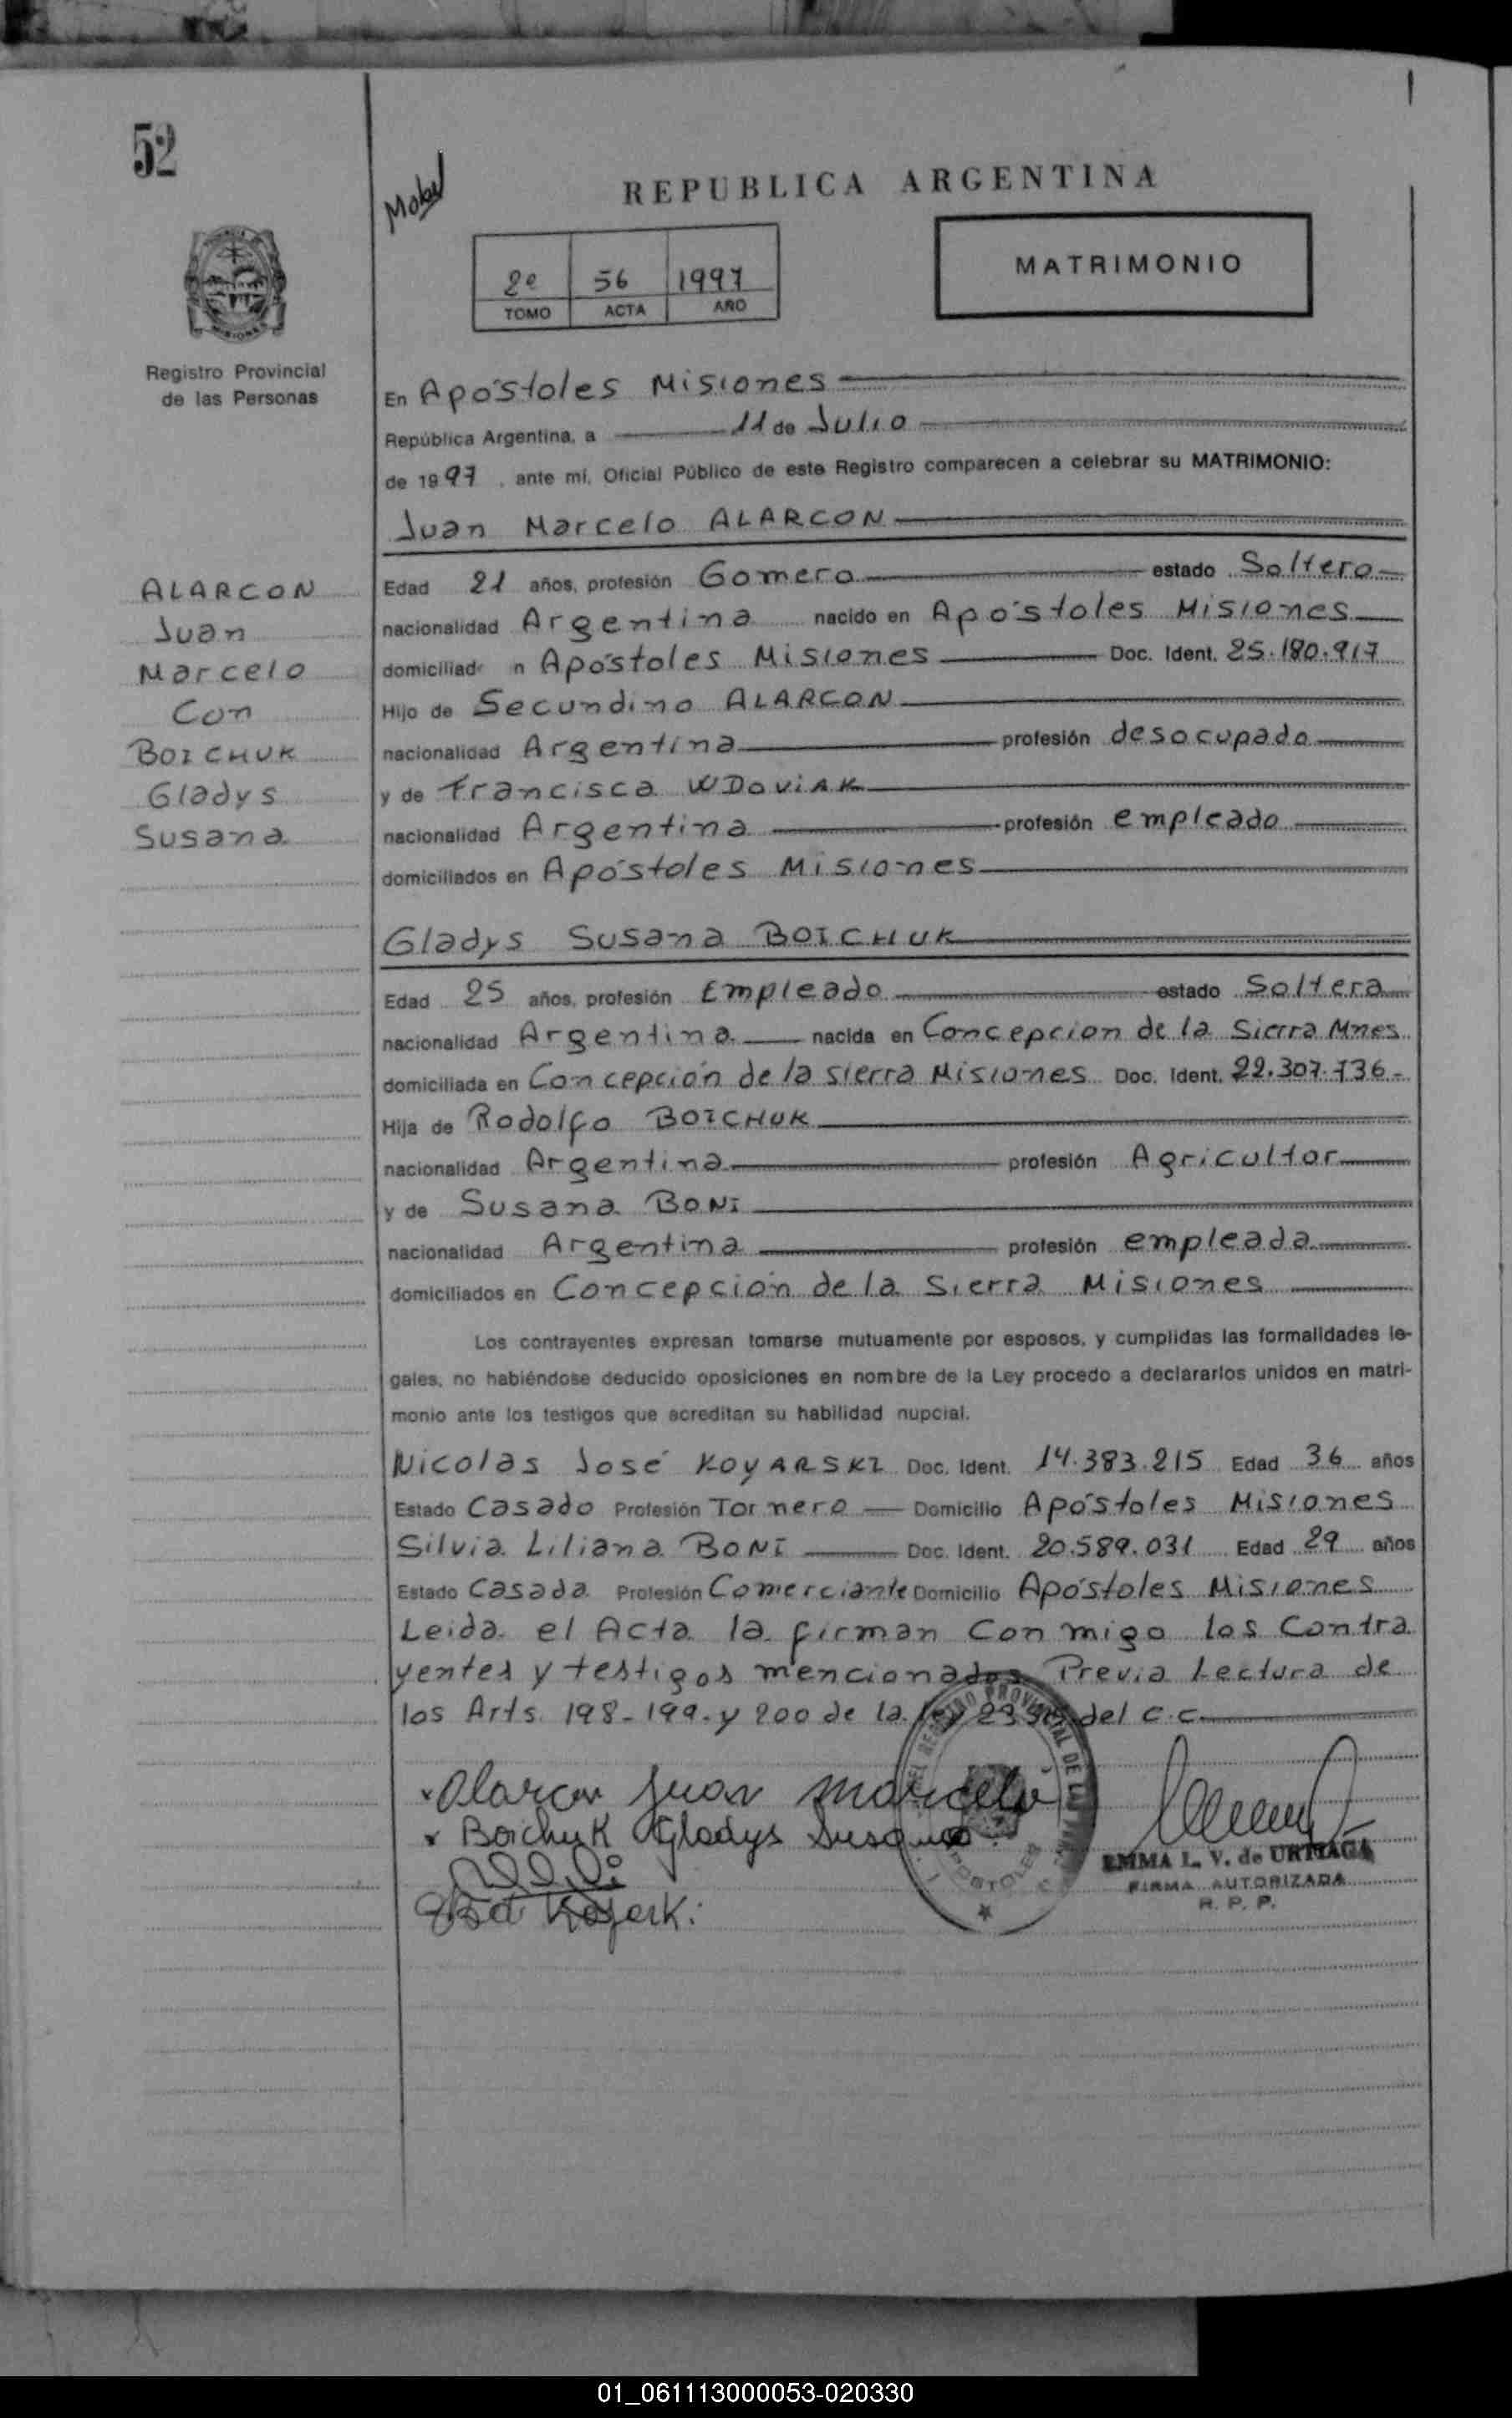 52
REPUBLICA ARGENTINA
2º 56 1997
TOMO ACTA AÑO
MATRIMONIO
Registro Provincial
de las Personas
En Apóstoles Misiones
República Argentina, a 11 de Julio
de 1997, ante mí, Oficial Público de este Registro comparecen a celebrar su MATRIMONIO:
Juan Marcelo ALARCON
ALARCON
Juan
Marcelo
Con
BOICHUK
Gladys
Susana
Edad 21 años, profesión Gomero estado Soltero
nacionalidad Argentina nacido en Apóstoles Misiones
domiciliad n Apóstoles Misiones Doc. Ident. 25.180.917
Hijo de Secundino ALARCON
nacionalidad Argentina profesión desocupado
y de Francisca WDOVIAK
nacionalidad Argentina profesión empleado
domiciliados en Apóstoles Misiones
Gladys Susana BOICHUK
Edad 25 años, profesión Empleado estado Soltera
nacionalidad Argentina nacida en Concepcion de la Sierra Mnes
domiciliada en Concepción de la sierra Misiones Doc. Ident. 22.307.736
Hija de Rodolfo BOICHUK
nacionalidad Argentina profesión Agricultor
y de Susana BONI
nacionalidad Argentina profesión empleada
domiciliados en Concepción de la Sierra Misiones
Los contrayentes expresan tomarse mutuamente por esposos, y cumplidas las formalidades le-
gales, no habiéndose deducido oposiciones en nombre de la Ley procedo a declararlos unidos en matri-
monio ante los testigos que acreditan su habilidad nupcial.
Nicolas José KOYARSKI Doc. Ident. 14.383.215 Edad 36 años
Estado Casado Profesión Tornero Domicilio Apóstoles Misiones
Silvia Liliana BONI Doc. Ident. 20.589.031 Edad 29 años
Estado Casada Profesión Comerciante Domicilio Apóstoles Misiones
Leida el Acta la firman Conmigo los Contra
yentes y testigos mencionados Previa Lectura de
los Arts. 198-199-y 200 de la ley del C.C.
Alarcon Juan Marcelo
Boichuk Gladys Susana
EMMA L. V. de URTIAGA
FIRMA AUTORIZADA
R. P. P.
01_061113000053-020330